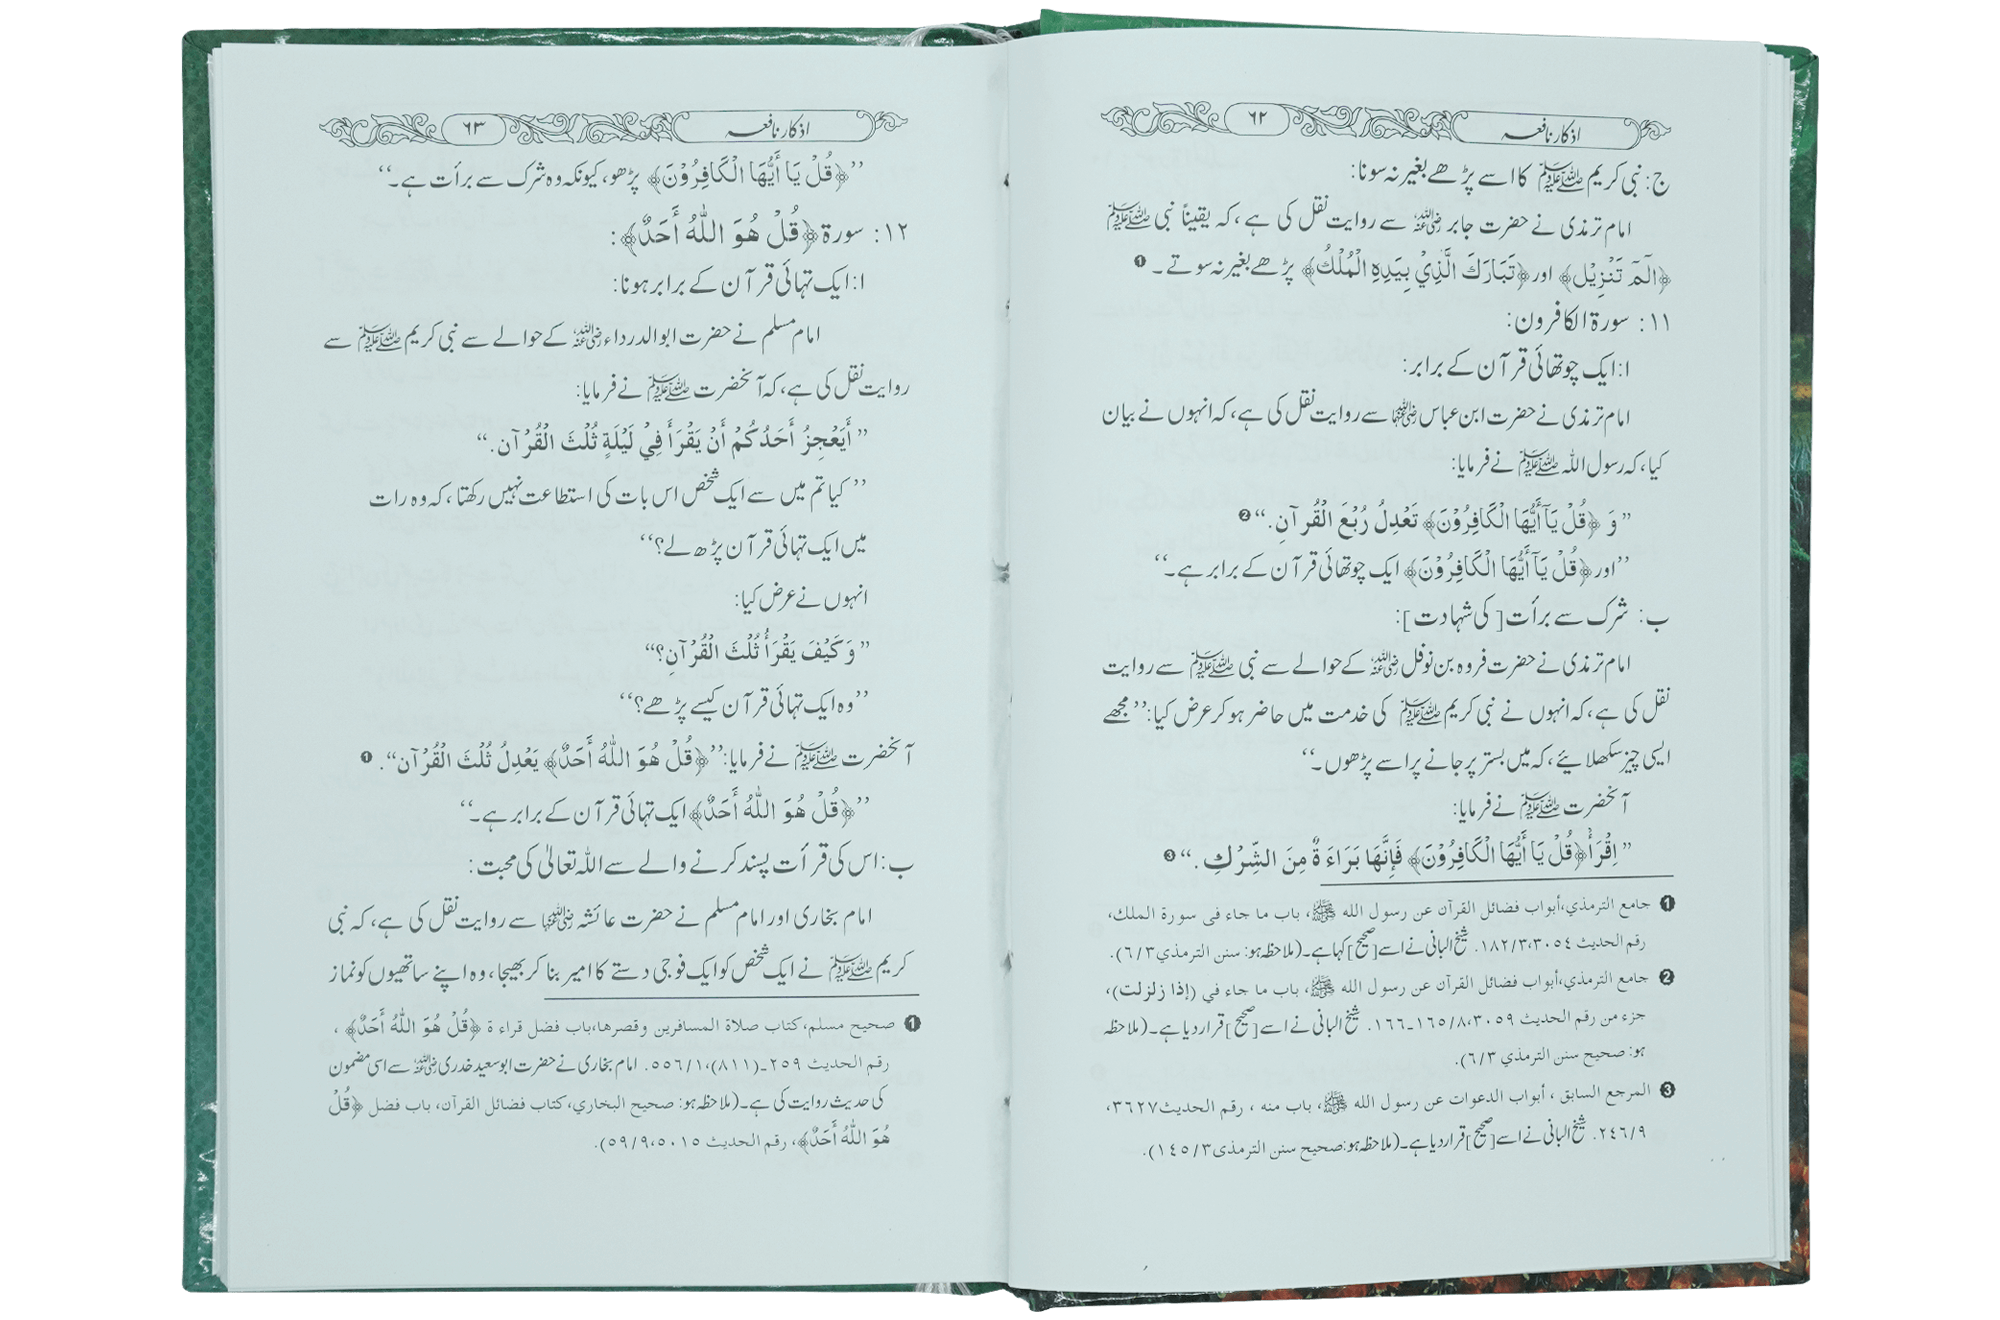 اذکار نافعہ
۶۲
ج: نبی کریم ﷺ کا اسے پڑھے بغیر نہ سونا:
امام ترمذی نے حضرت جابر رضی اللہ عنہ سے روایت نقل کی ہے، کہ یقیناً نبی ﷺ
﴿الٓمّٓ تَنْزِيْل﴾ اور ﴿تَبَارَكَ الَّذِيْ بِيَدِهِ الْمُلْكُ﴾ پڑھے بغیر نہ سوتے۔ ❶
۱۱: سورۃ الکافرون:
ا: ایک چوتھائی قرآن کے برابر:
امام ترمذی نے حضرت ابن عباس رضی اللہ عنہما سے روایت نقل کی ہے، کہ انہوں نے بیان
کیا، کہ رسول اللہ ﷺ نے فرمایا:
”وَ ﴿قُلْ يَآ أَيُّهَا الْكَافِرُوْنَ﴾ تَعْدِلُ رُبُعَ الْقُرآنِ.“ ❷
’’اور ﴿قُلْ يَآ أَيُّهَا الْكَافِرُوْنَ﴾ ایک چوتھائی قرآن کے برابر ہے۔‘‘
ب: شرک سے برأت [کی شہادت]:
امام ترمذی نے حضرت فروہ بن نوفل رضی اللہ عنہ کے حوالے سے نبی ﷺ سے روایت
نقل کی ہے، کہ انہوں نے نبی کریم ﷺ کی خدمت میں حاضر ہو کر عرض کیا: ’’مجھے
ایسی چیز سکھلائیے، کہ میں بستر پر جانے پر اسے پڑھوں۔‘‘
آنحضرت ﷺ نے فرمایا:
”اِقْرَأْ ﴿قُلْ يَا أَيُّهَا الْكَافِرُوْنَ﴾ فَإِنَّهَا بَرَاءَةٌ مِنَ الشِّرْكِ.“ ❸
❶ جامع الترمذي، أبواب فضائل القرآن عن رسول الله ﷺ، باب ما جاء فى سورة الملك،
رقم الحديث ٣٠٥٤، ١٨٢/٣. شیخ البانی نے اسے [صحیح] کہا ہے۔ (ملاحظہ ہو: سنن الترمذي ٦/٣).
❷ جامع الترمذي، أبواب فضائل القرآن عن رسول الله ﷺ، باب ما جاء في (إذا زلزلت)،
جزء من رقم الحديث ٣٠٥٩، ١٦٥/٨-١٦٦. شیخ البانی نے اسے [صحیح] قرار دیا ہے۔ (ملاحظہ
ہو: صحيح سنن الترمذي ٦/٣).
❸ المرجع السابق، أبواب الدعوات عن رسول الله ﷺ، باب منه، رقم الحديث ٣٦٢٧،
٢٤٦/٩. شیخ البانی نے اسے [صحیح] قرار دیا ہے۔ (ملاحظہ ہو: صحيح سنن الترمذى ١٤٥/٣).
اذکار نافعہ
۶۳
’’﴿قُلْ يَا أَيُّهَا الْكَافِرُوْنَ﴾ پڑھو، کیونکہ وہ شرک سے برأت ہے۔‘‘
۱۲: سورۃ ﴿قُلْ هُوَ اللّٰهُ أَحَدٌ﴾:
ا: ایک تہائی قرآن کے برابر ہونا:
امام مسلم نے حضرت ابوالدرداء رضی اللہ عنہ کے حوالے سے نبی کریم ﷺ سے
روایت نقل کی ہے، کہ آنحضرت ﷺ نے فرمایا:
”أَيَعْجِزُ أَحَدُكُمْ أَنْ يَقْرَأَ فِيْ لَيْلَةٍ ثُلُثَ الْقُرْآن.“
’’کیا تم میں سے ایک شخص اس بات کی استطاعت نہیں رکھتا، کہ وہ رات
میں ایک تہائی قرآن پڑھ لے؟‘‘
انہوں نے عرض کیا:
”وَكَيْفَ يَقْرَأُ ثُلُثَ الْقُرْآنِ؟“
’’وہ ایک تہائی قرآن کیسے پڑھے؟‘‘
آنحضرت ﷺ نے فرمایا: ’’﴿قُلْ هُوَ اللّٰهُ أَحَدٌ﴾ يَعْدِلُ ثُلُثَ الْقُرْآن“. ❶
’’﴿قُلْ هُوَ اللّٰهُ أَحَدٌ﴾ ایک تہائی قرآن کے برابر ہے۔‘‘
ب: اس کی قرأت پسند کرنے والے سے اللہ تعالیٰ کی محبت:
امام بخاری اور امام مسلم نے حضرت عائشہ رضی اللہ عنہا سے روایت نقل کی ہے، کہ نبی
کریم ﷺ نے ایک شخص کو ایک فوجی دستے کا امیر بنا کر بھیجا، وہ اپنے ساتھیوں کو نماز
❶ صحيح مسلم، كتاب صلاة المسافرين وقصرها، باب فضل قراءة ﴿قُلْ هُوَ اللّٰهُ أَحَدٌ﴾،
رقم الحديث ٢٥٩-(٨١١)، ٥٥٦/١. امام بخاری نے حضرت ابوسعید خدری رضی اللہ عنہ سے اسی مضمون
کی حدیث روایت کی ہے۔ (ملاحظہ ہو: صحيح البخاري، كتاب فضائل القرآن، باب فضل ﴿قُلْ
هُوَ اللّٰهُ أَحَدٌ﴾، رقم الحديث ٥٠١٥، ٥٩/٩).